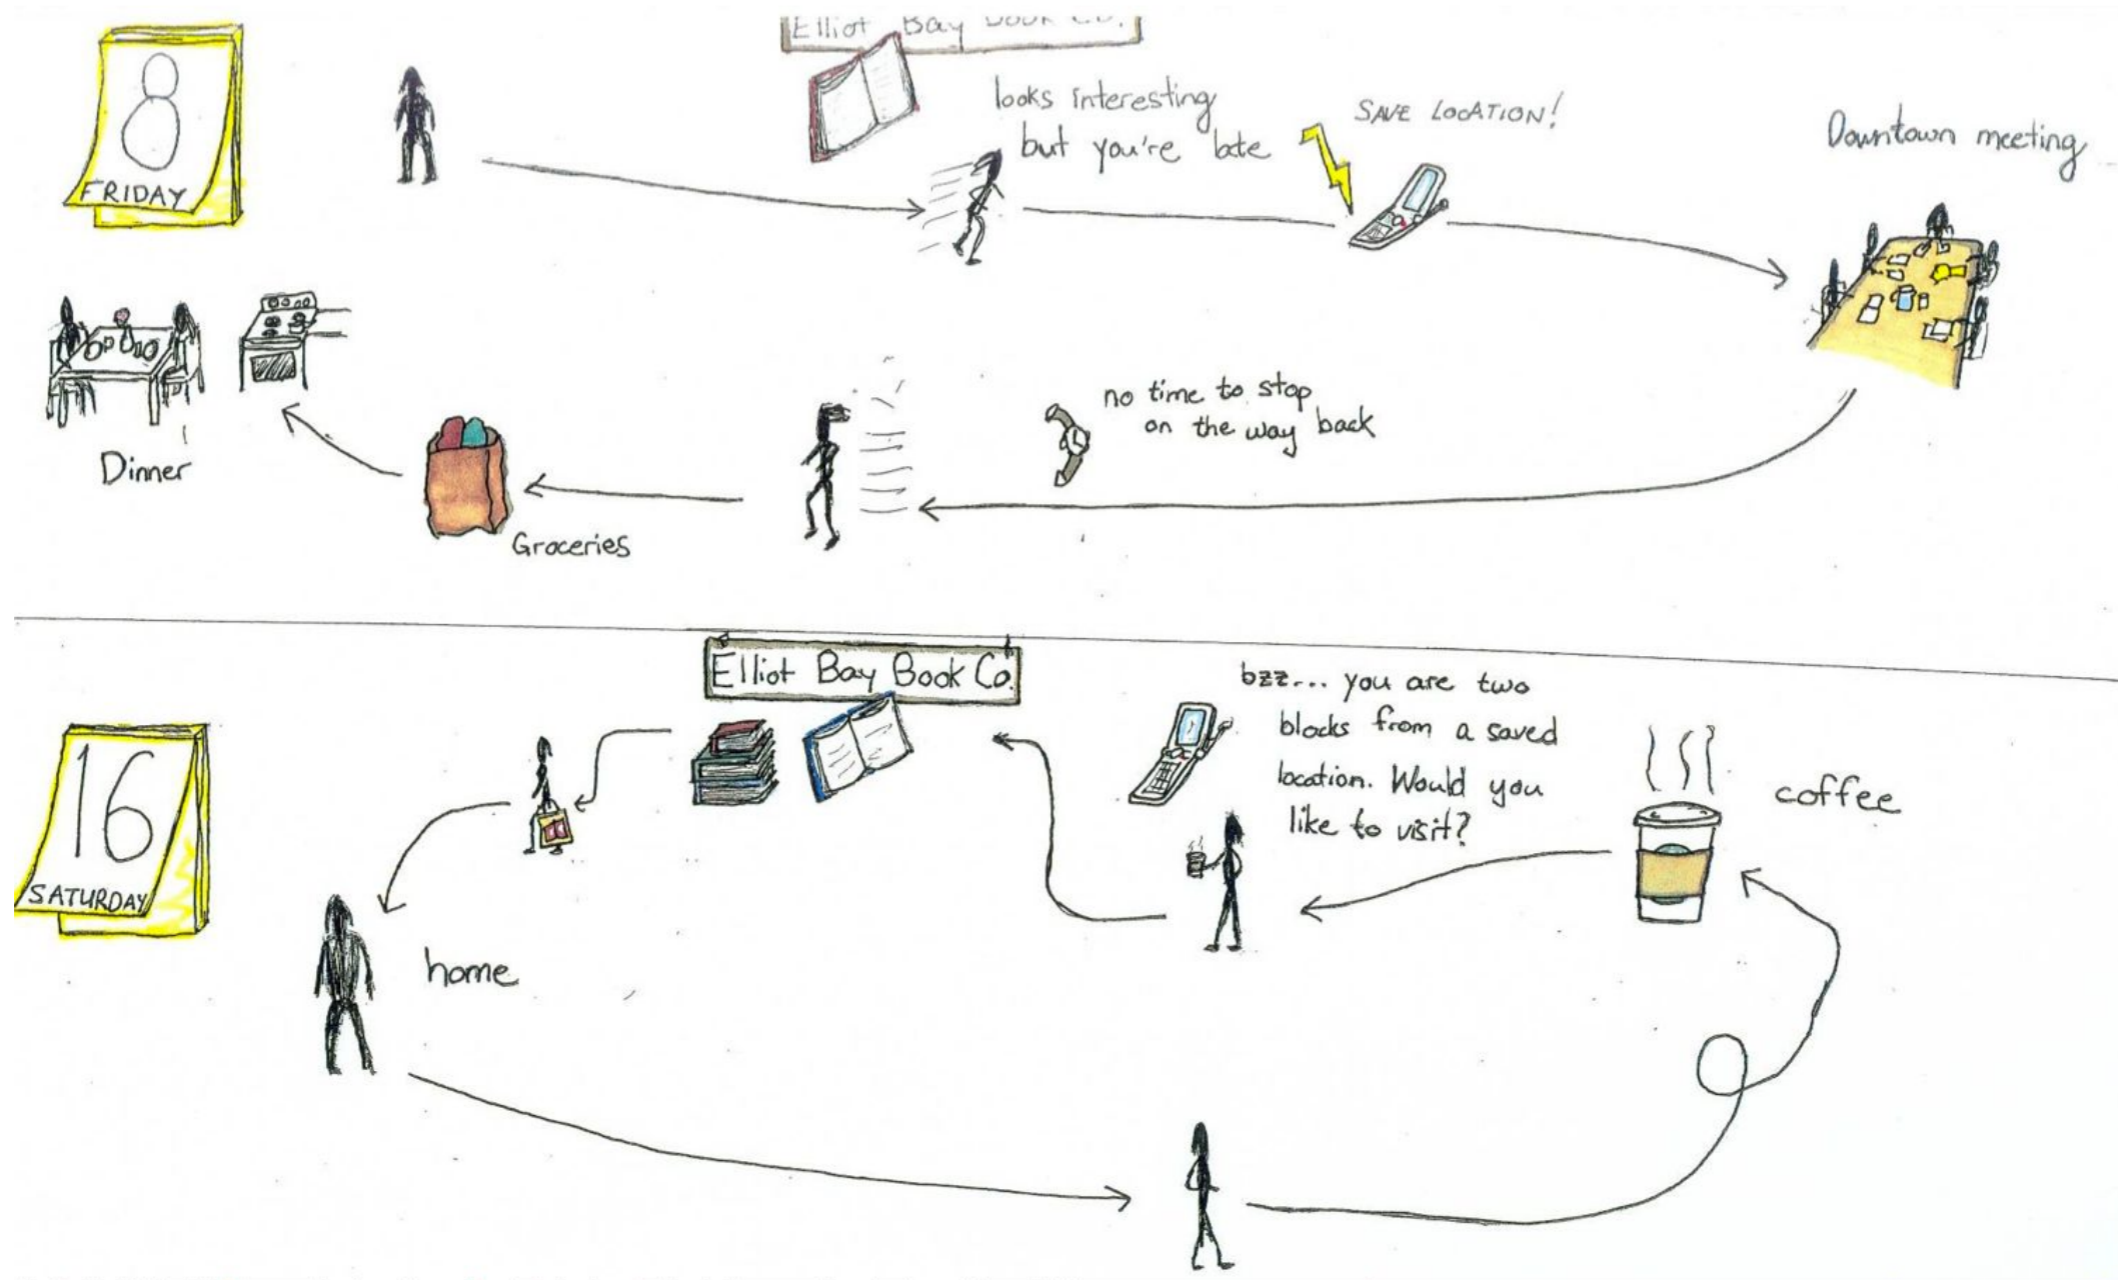 8
FRIDAY
Elliot Bay Book Co.
looks interesting
but you're late
SAVE LOCATION!
Downtown meeting
no time to stop
on the way back
Groceries
Dinner
16
SATURDAY
Elliot Bay Book Co.
bzz... you are two
blocks from a saved
location. Would you
like to visit?
coffee
home